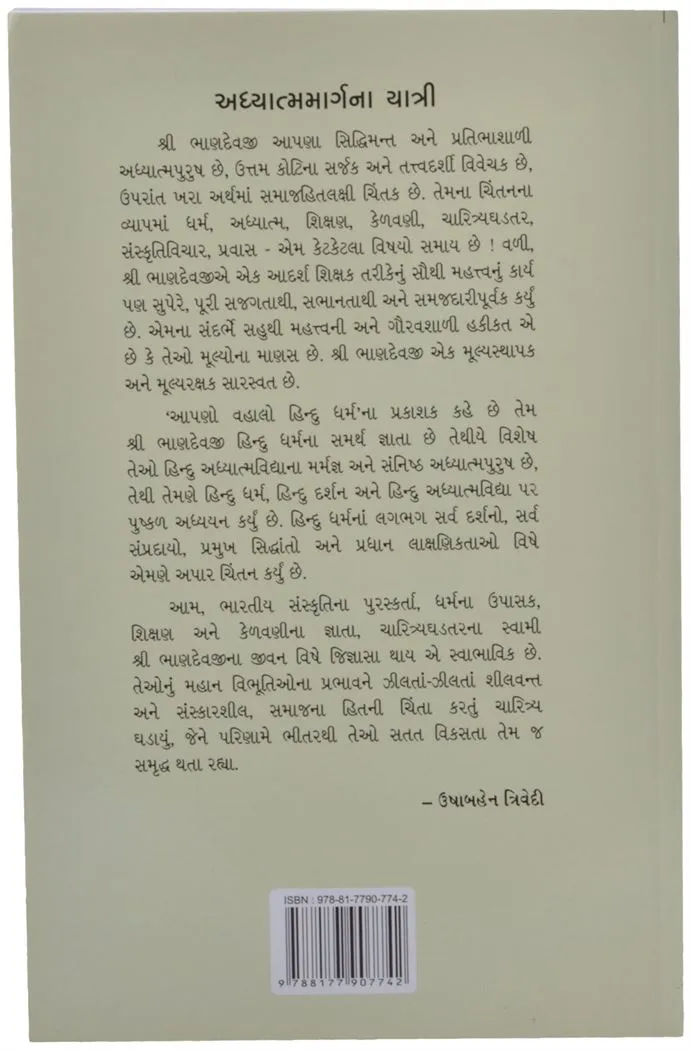 અધ્યાત્મમાર્ગના યાત્રી
શ્રી ભાણદેવજી આપણા સિદ્ધિમન્ત અને પ્રતિભાશાળી
અધ્યાત્મપુરુષ છે, ઉત્તમ કોટિના સર્જક અને તત્ત્વદર્શી વિવેચક છે,
ઉપરાંત ખરા અર્થમાં સમાજહિતલક્ષી ચિંતક છે. તેમના ચિંતનના
વ્યાપમાં ધર્મ, અધ્યાત્મ, શિક્ષણ, કેળવણી, ચારિત્ર્યઘડતર,
સંસ્કૃતિવિચાર, પ્રવાસ - એમ કેટકેટલા વિષયો સમાય છે ! વળી,
શ્રી ભાણદેવજીએ એક આદર્શ શિક્ષક તરીકેનું સૌથી મહત્ત્વનું કાર્ય
પણ સુપેરે, પૂરી સજગતાથી, સભાનતાથી અને સમજદારીપૂર્વક કર્યું
છે. એમના સંદર્ભે સહુથી મહત્ત્વની અને ગૌરવશાળી હકીકત એ
છે કે તેઓ મૂલ્યોના માણસ છે. શ્રી ભાણદેવજી એક મૂલ્યસ્થાપક
અને મૂલ્યરક્ષક સારસ્વત છે.
'આપણો વહાલો હિન્દુ ધર્મ'ના પ્રકાશક કહે છે તેમ
શ્રી ભાણદેવજી હિન્દુ ધર્મના સમર્થ જ્ઞાતા છે તેથીયે વિશેષ
તેઓ હિન્દુ અધ્યાત્મવિદ્યાના મર્મજ્ઞ અને સંનિષ્ઠ અધ્યાત્મપુરુષ છે,
તેથી તેમણે હિન્દુ ધર્મ, હિન્દુ દર્શન અને હિન્દુ અધ્યાત્મવિદ્યા પર
પુષ્કળ અધ્યયન કર્યું છે. હિન્દુ ધર્મનાં લગભગ સર્વ દર્શનો, સર્વ
સંપ્રદાયો, પ્રમુખ સિદ્ધાંતો અને પ્રધાન લાક્ષણિકતાઓ વિષે
એમણે અપાર ચિંતન કર્યું છે.
આમ, ભારતીય સંસ્કૃતિના પુરસ્કર્તા, ધર્મના ઉપાસક,
શિક્ષણ અને કેળવણીના જ્ઞાતા, ચારિત્ર્યઘડતરના સ્વામી
શ્રી ભાણદેવજીના જીવન વિષે જિજ્ઞાસા થાય એ સ્વાભાવિક છે.
તેઓનું મહાન વિભૂતિઓના પ્રભાવને ઝીલતાં-ઝીલતાં શીલવન્ત
અને સંસ્કારશીલ, સમાજના હિતની ચિંતા કરતું ચારિત્ર્ય
ઘડાયું, જેને પરિણામે ભીતરથી તેઓ સતત વિકસતા તેમ જ
સમૃદ્ધ થતા રહ્યા.
– ઉષાબહેન ત્રિવેદી
ISBN : 978-81-7790-774-2
9 788177 907742